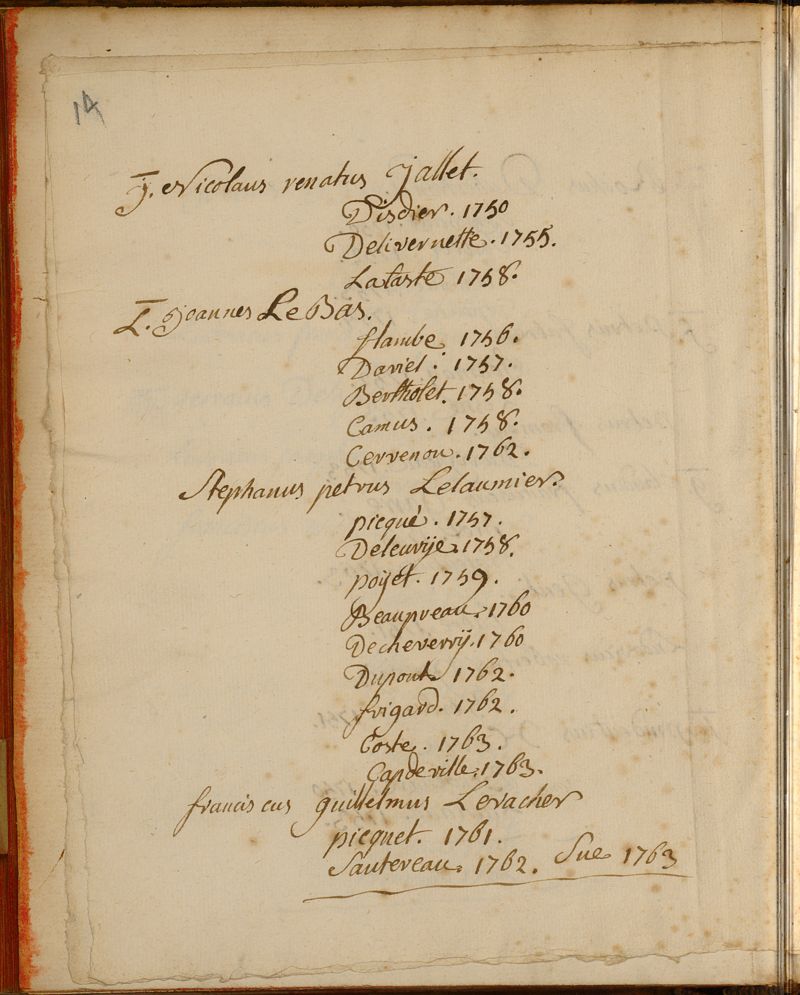 14
T. Nicolaus renatus Jallet.
Disdier. 1750
Delivernette. 1755.
Lataste 1758.
T. Joannes Le Bas.
flambe 1756.
Daviel. 1757.
Bertholet. 1758.
Camus. 1758.
Cervenon. 1762.
Stephanus petrus Lelaumier.
picqué. 1757.
Deleurije. 1758.
poijet. 1759.
Beaupreau. 1760
Decheverrij. 1760
Dupont 1762.
frigard. 1762.
Coste. 1763.
Capdeville. 1763.
franciscus guillelmus Levacher
picquet. 1761.
Sautereau. 1762. Sue 1763